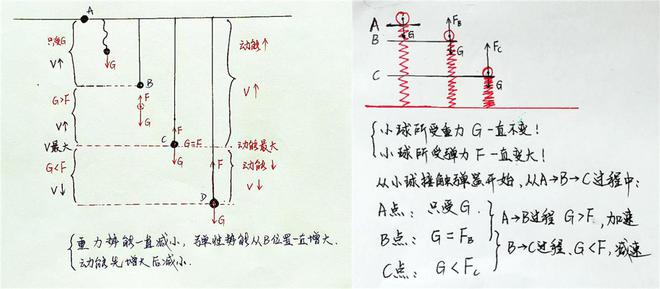 A
只受G
V↑
G
动能↑
V↑
B
F
G
G>F
V↑
V最大
F
C
G=F
G
动能最大
G<F
V↓
动能↓
V↓
F
D
G
重力势能一直减小,弹性势能从B位置一直增大.
动能先增大后减小.
A
B
C
G
F_B
G
F_C
G
小球所受重力 G 一直不变!
小球所受弹力 F 一直变大!
从小球接触弹簧开始,从A→B→C过程中:
A点: 只受 G.
B点: G = F_B
C点: G < F_C
A→B过程 G>F,加速
B→C过程、G<F,减速